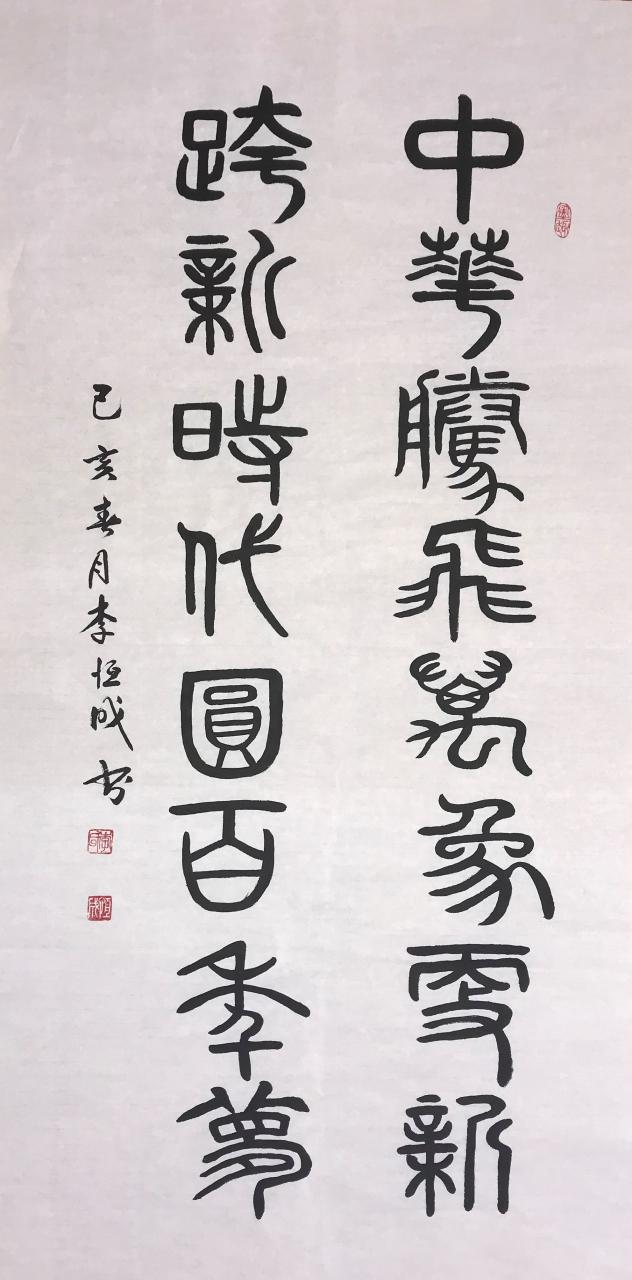 中華騰飛萬象更新
跨新時代圓百年夢
己亥春月李恒成书